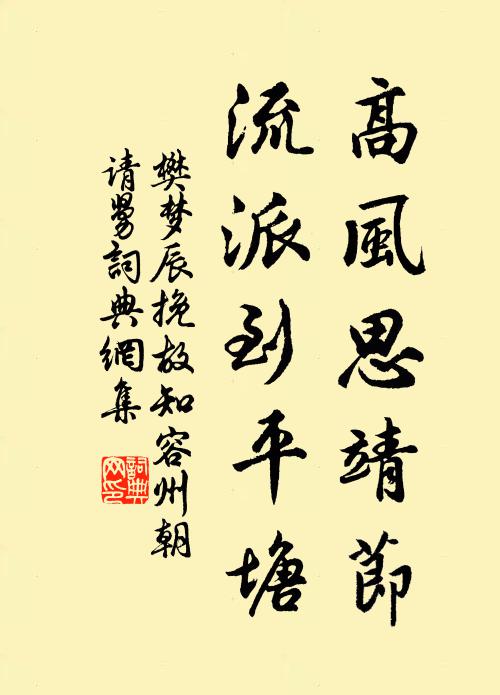 高風思靖節
流派到平塘
樊梦辰挽故知容州朝
请勞詞典網集
詞典